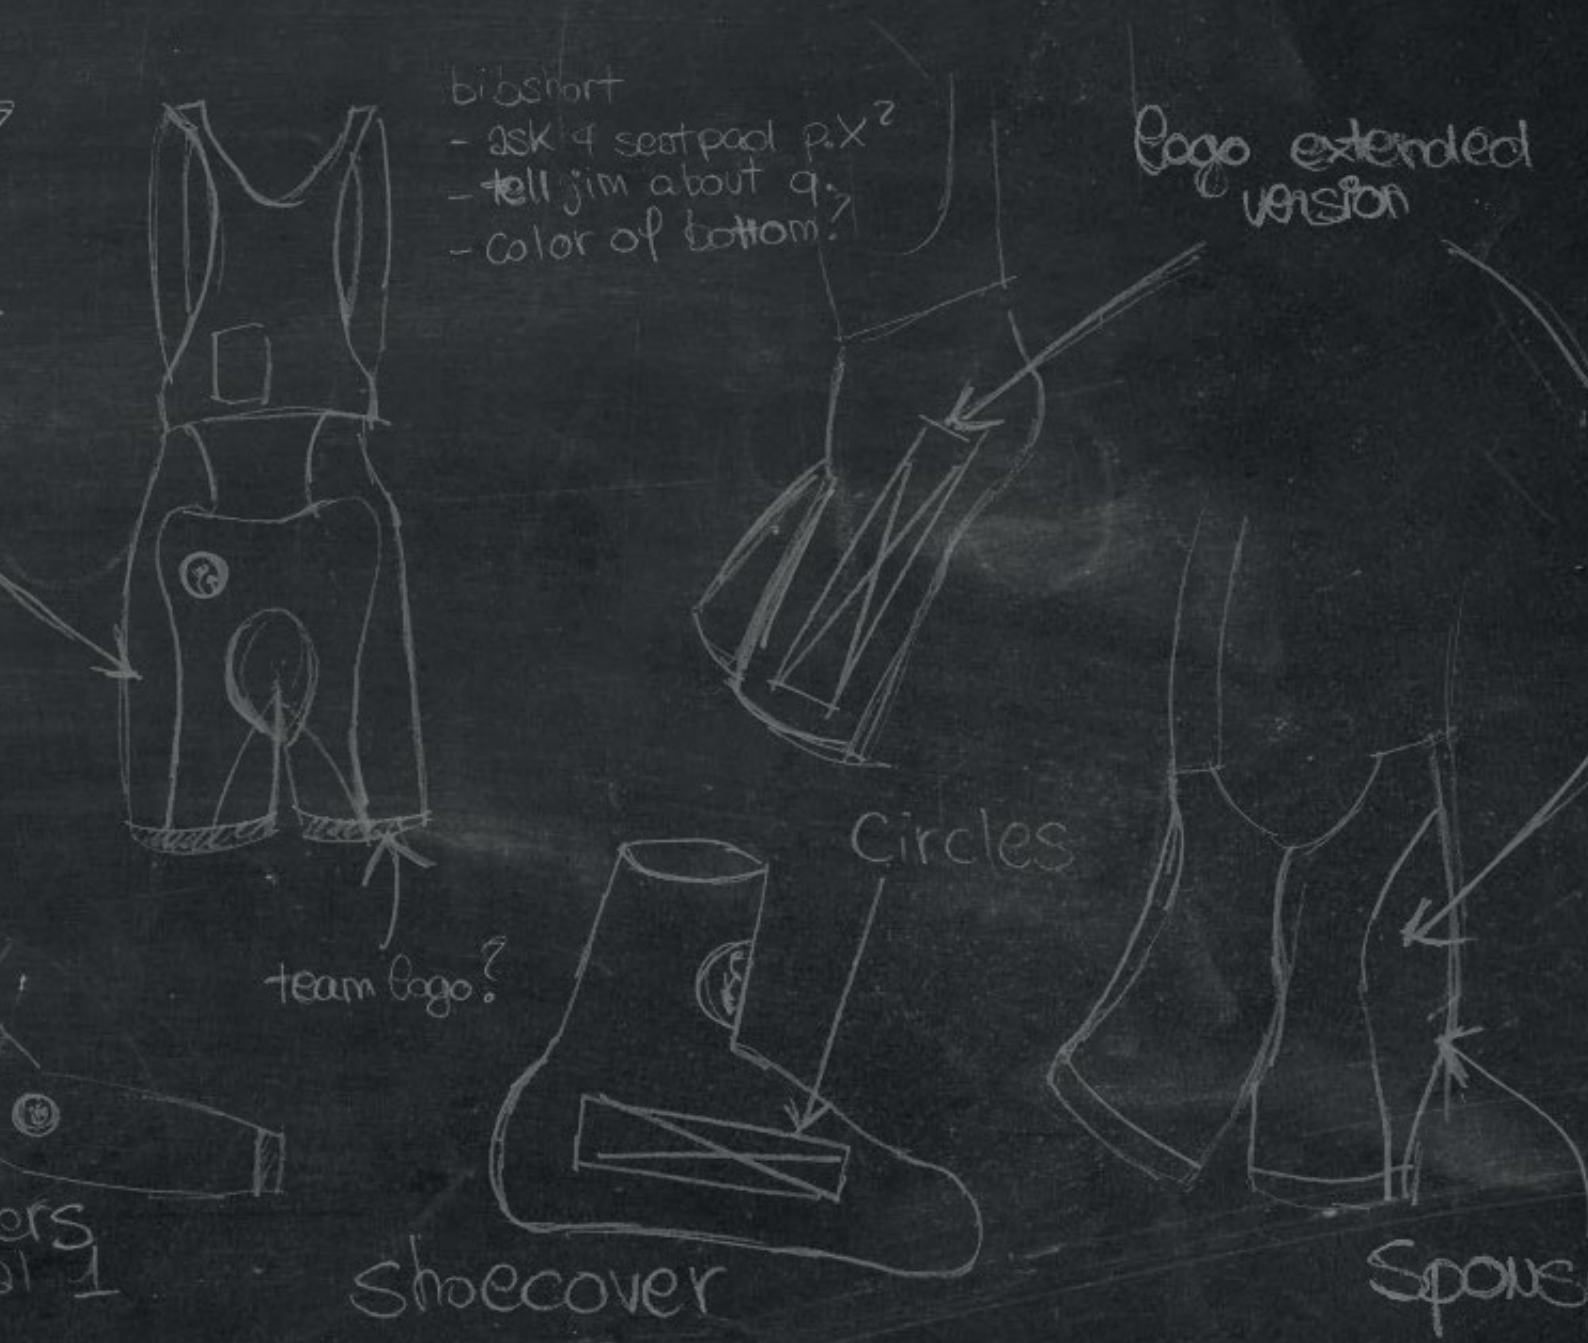 bibshort
- ask 4 seatpad p.x?
- tell jim about q.
- color of bottom?
logo extended
version
Circles
team logo?
ers
al 1
shoecover
Spons